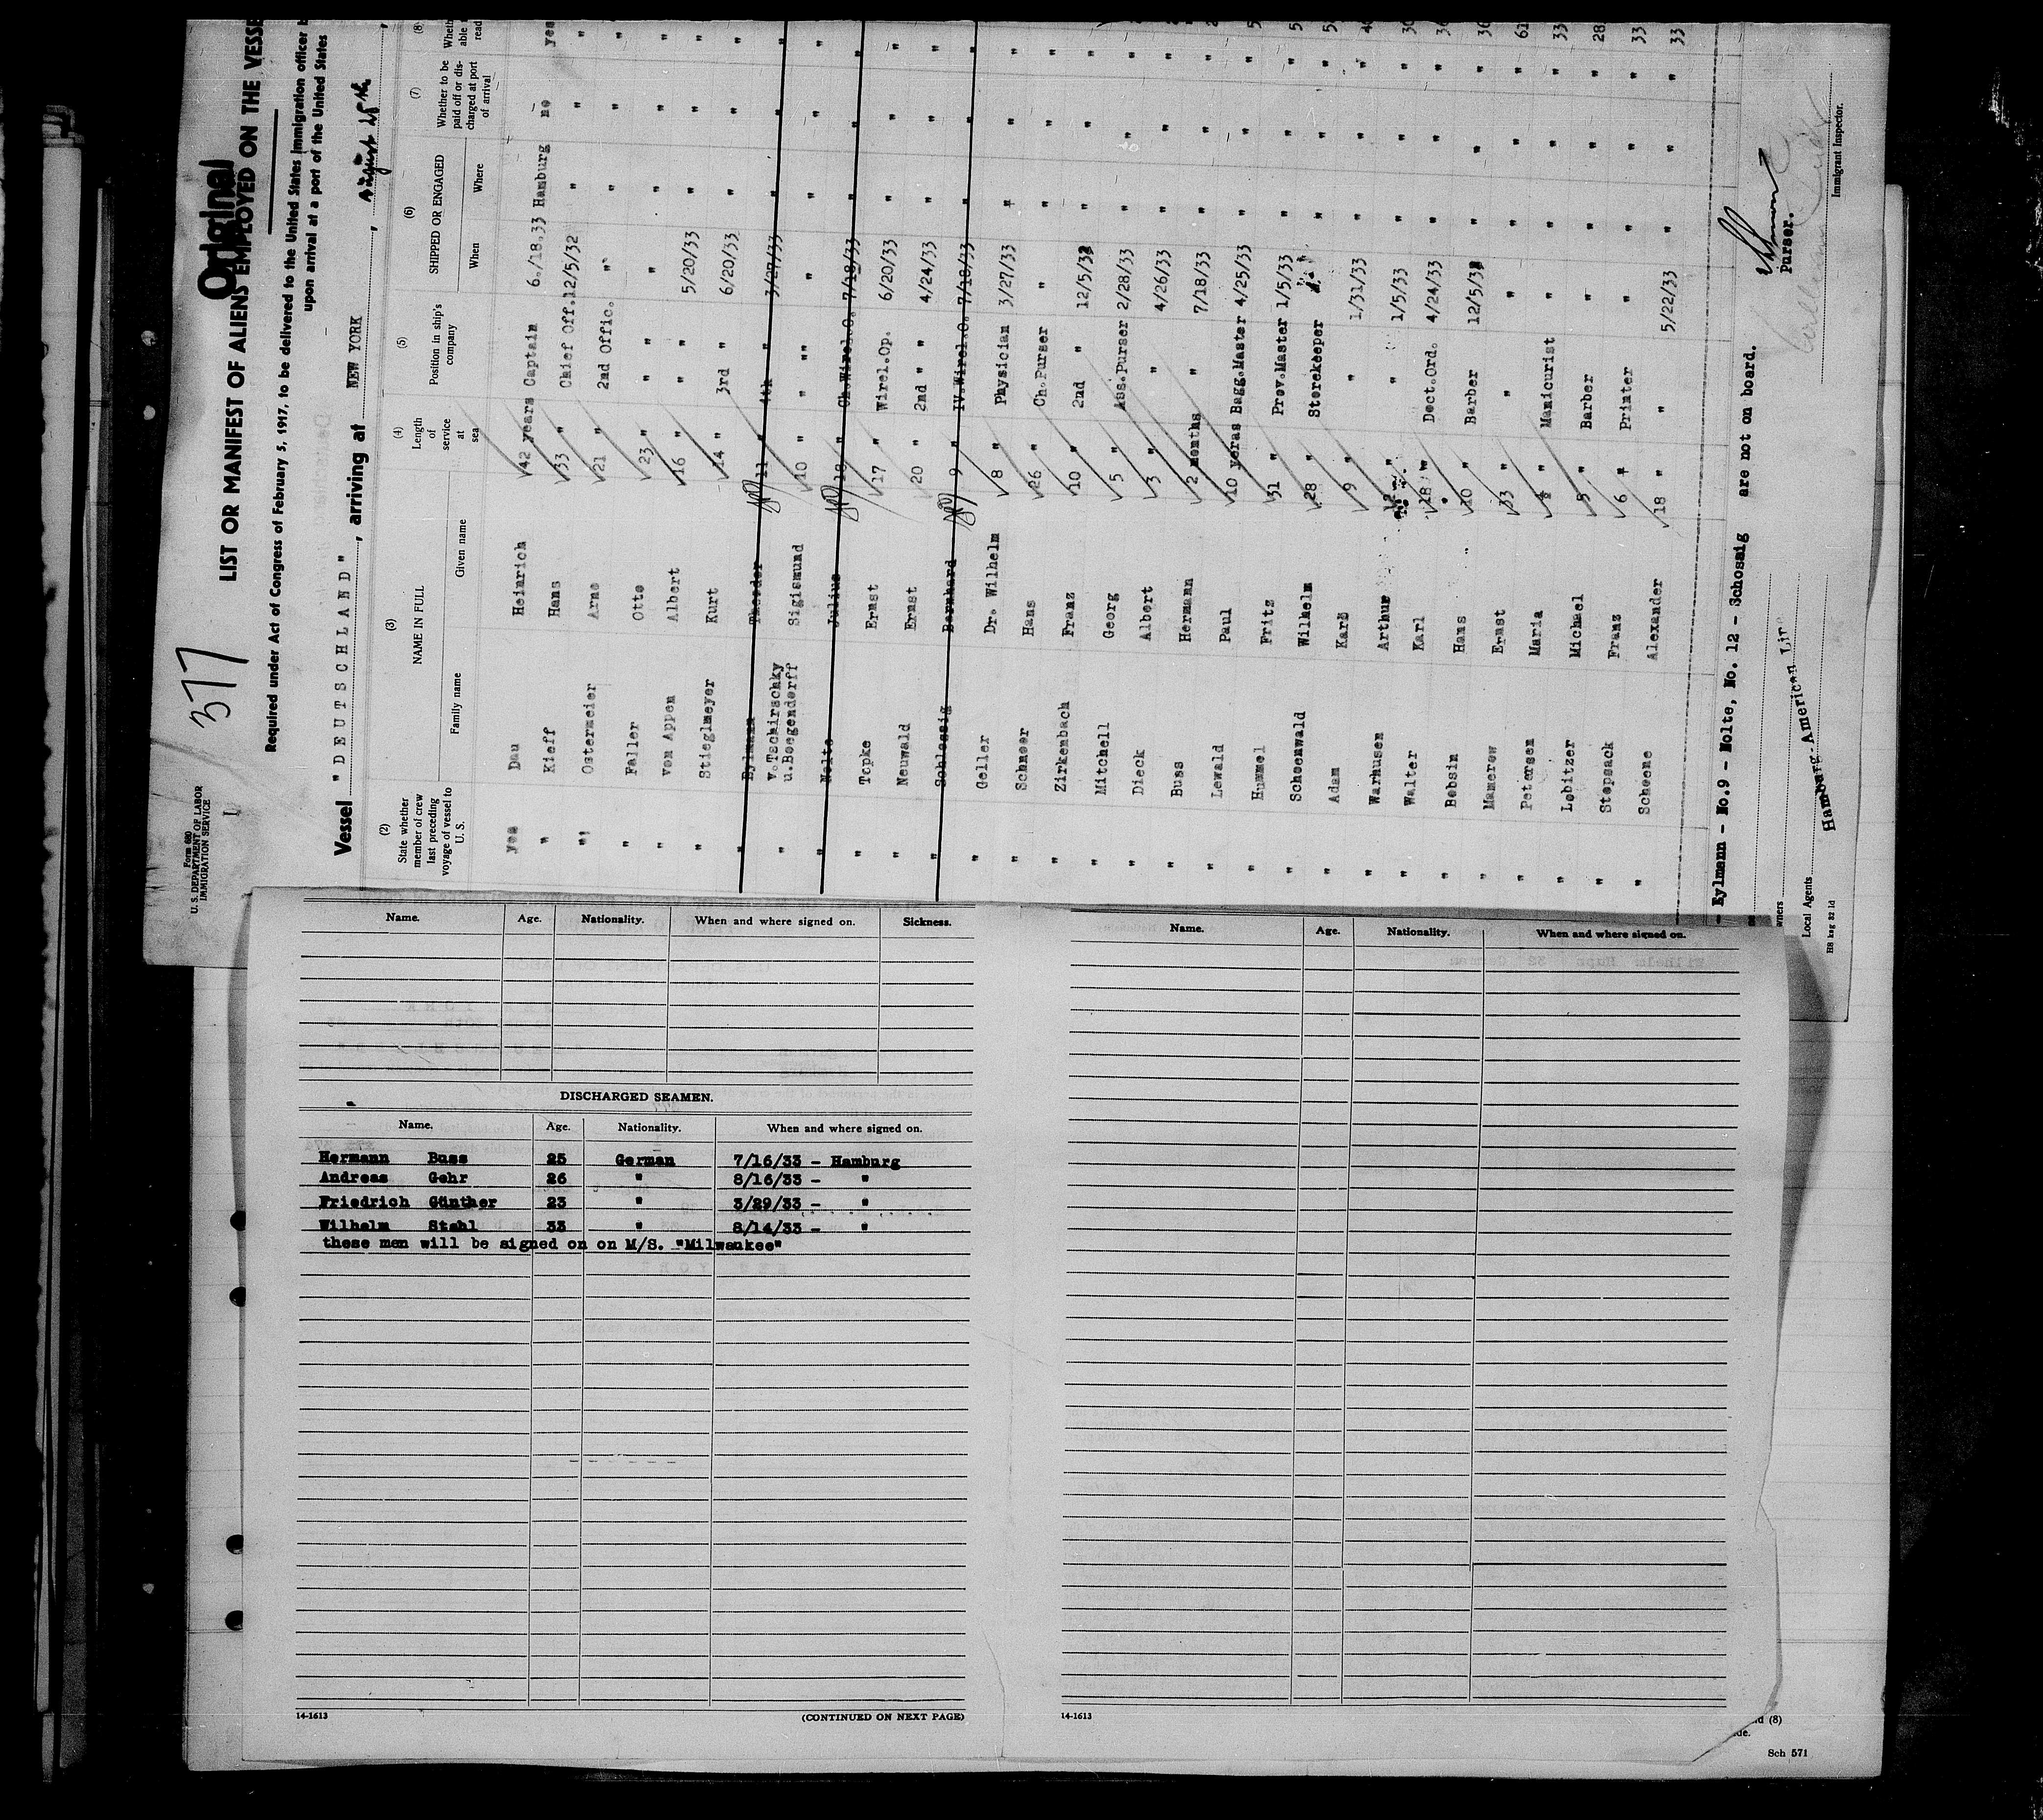 377
Original
Form 680
U. S. DEPARTMENT OF LABOR
IMMIGRATION SERVICE
LIST OR MANIFEST OF ALIENS EMPLOYED ON THE VESSE
Required under Act of Congress of February 5, 1917, to be delivered to the United States Immigration officer b
upon arrival at a port of the United States
Vessel "DEUTSCHLAND", arriving at NEW YORK, August
(2) State whether member of crew last preceding voyage of vessel to U. S.
(3) NAME IN FULL Family name Given name
(4) Length of service at sea
(5) Position in ship's company
(6) SHIPPED OR ENGAGED When Where
(7) Whether to be paid off or discharged at port of arrival
(8)
yes Dau Heinrich 42 years Captain 6./18.33 Hamburg no yes
" Kieff Hans 33 " Chief Off. 12/5/32 " " "
" Ostermeier Arno 21 " 2nd Offic. " " " "
" Faller Otto 23 " " " " " "
" von Appen Albert 16 " " 5/20/33 " " "
" Stieglmeyer Kurt 14 " 3rd " 6/20/33 " " "
" Eylmann Theodor 11 " 4th " 3/27/33 " " "
" v. Tschirschky u. Boegendorff Sigismund 10 " " "" " " " "
" Nolte Julius 18 " Ch.Wirel.O. 7/18/33 " " "
" Topke Ernst 17 " Wirel.Op. 6/20/33 " " "
" Neuwald Ernst 20 " 2nd " " 4/24/33 " " "
" Schlossig Bernhard 9 " IV.Wirel.O. 7/18/33 " " "
" Geller Dr. Wilhelm 8 " Physician 3/27/33 " " "
" Schneer Hans 26 " Ch.Purser " " " "
" Zirkenbach Franz 10 " 2nd " 12/5/32 " " "
" Mitchell Georg 5 " Ass.Purser 2/28/33 " " "
" Dieck Albert 3 " " 4/26/33 " " "
" Buss Hermann 2 months " 7/18/33 " " "
" Lewald Paul 10 yeras Bagg.Master 4/25/33 " " "
" Hummel Fritz 31 " Prov.Master 1/5/33 " " "
" Schoenwald Wilhelm 28 " Storekeeper " " "
" Adam Karl 9 " " 1/31/33 " " "
" Warhusen Arthur " " 1/5/33 " " "
" Walter Karl 18 " Dect.Ord. 4/24/33 " " "
" Bobsin Hans 10 " Barber 12/5/32 " " "
" Mamerow Ernst 33 " " " " " "
" Petersen Maria " Manicurist " " " "
" Lobitzer Michael 5 " Barber " " " "
" Stopsack Franz 6 " Printer " " " "
" Scheene Alexander 18 " " 5/22/33 " " "
- Eylmann - No.9 - Nolte, No. 12 - Schossig are not on board.
Purser.
Immigrant Inspector.
wners
Local Agents Hamburg-American Line
HB ksg 82 ld
Name. Age. Nationality. When and where signed on. Sickness.
DISCHARGED SEAMEN.
Name. Age. Nationality. When and where signed on.
Hermann Buss 25 German 7/16/33 - Hamburg
Andreas Gehr 26 " 8/16/33 - "
Friedrich Günther 23 " 3/29/33 - "
Wilhelm Stahl 33 " 8/14/33 - "
these men will be signed on on M/S. "Milwaukee"
14-1613 (CONTINUED ON NEXT PAGE)
Name. Age. Nationality. When and where signed on.
14-1613
d (8)
de.
Sch 571